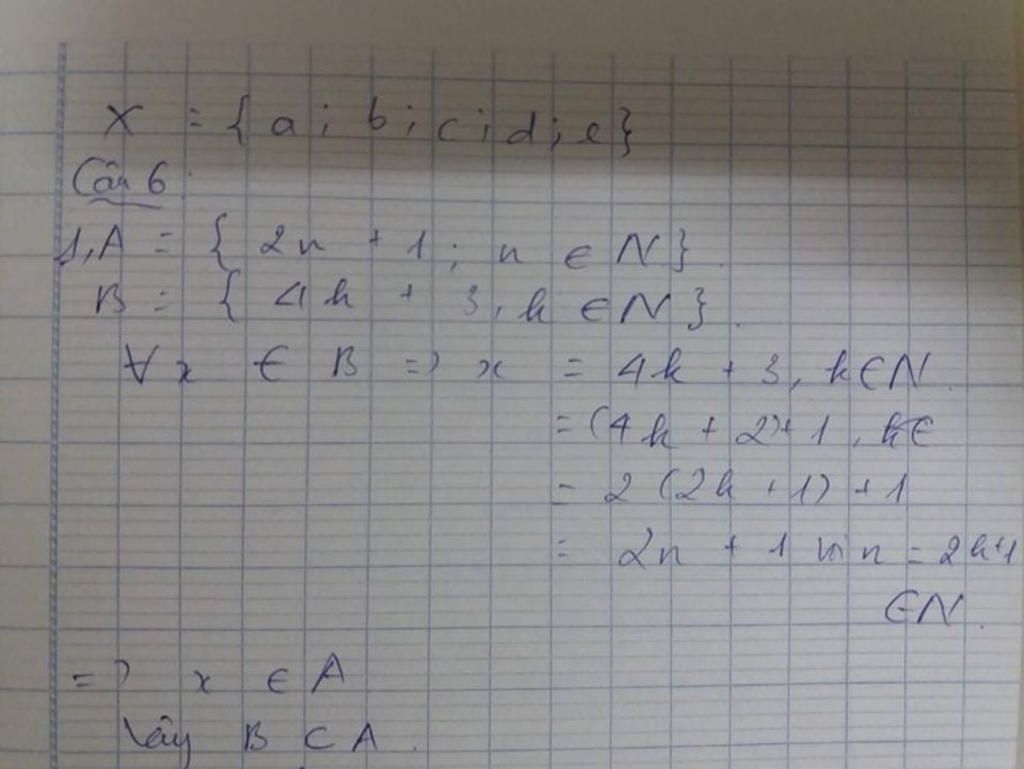 X = { a ; b ; c ; d ; e }
Câu 6:
1, A = { 2n + 1 ; n ∈ N }.
B = { 4k + 3, k ∈ N }.
∀ x ∈ B => x = 4k + 3, k ∈ N.
= (4k + 2) + 1, k ∈
= 2 (2k + 1) + 1
= 2n + 1 với n = 2k+1
∈ N.
=> x ∈ A
Vậy B ⊂ A.